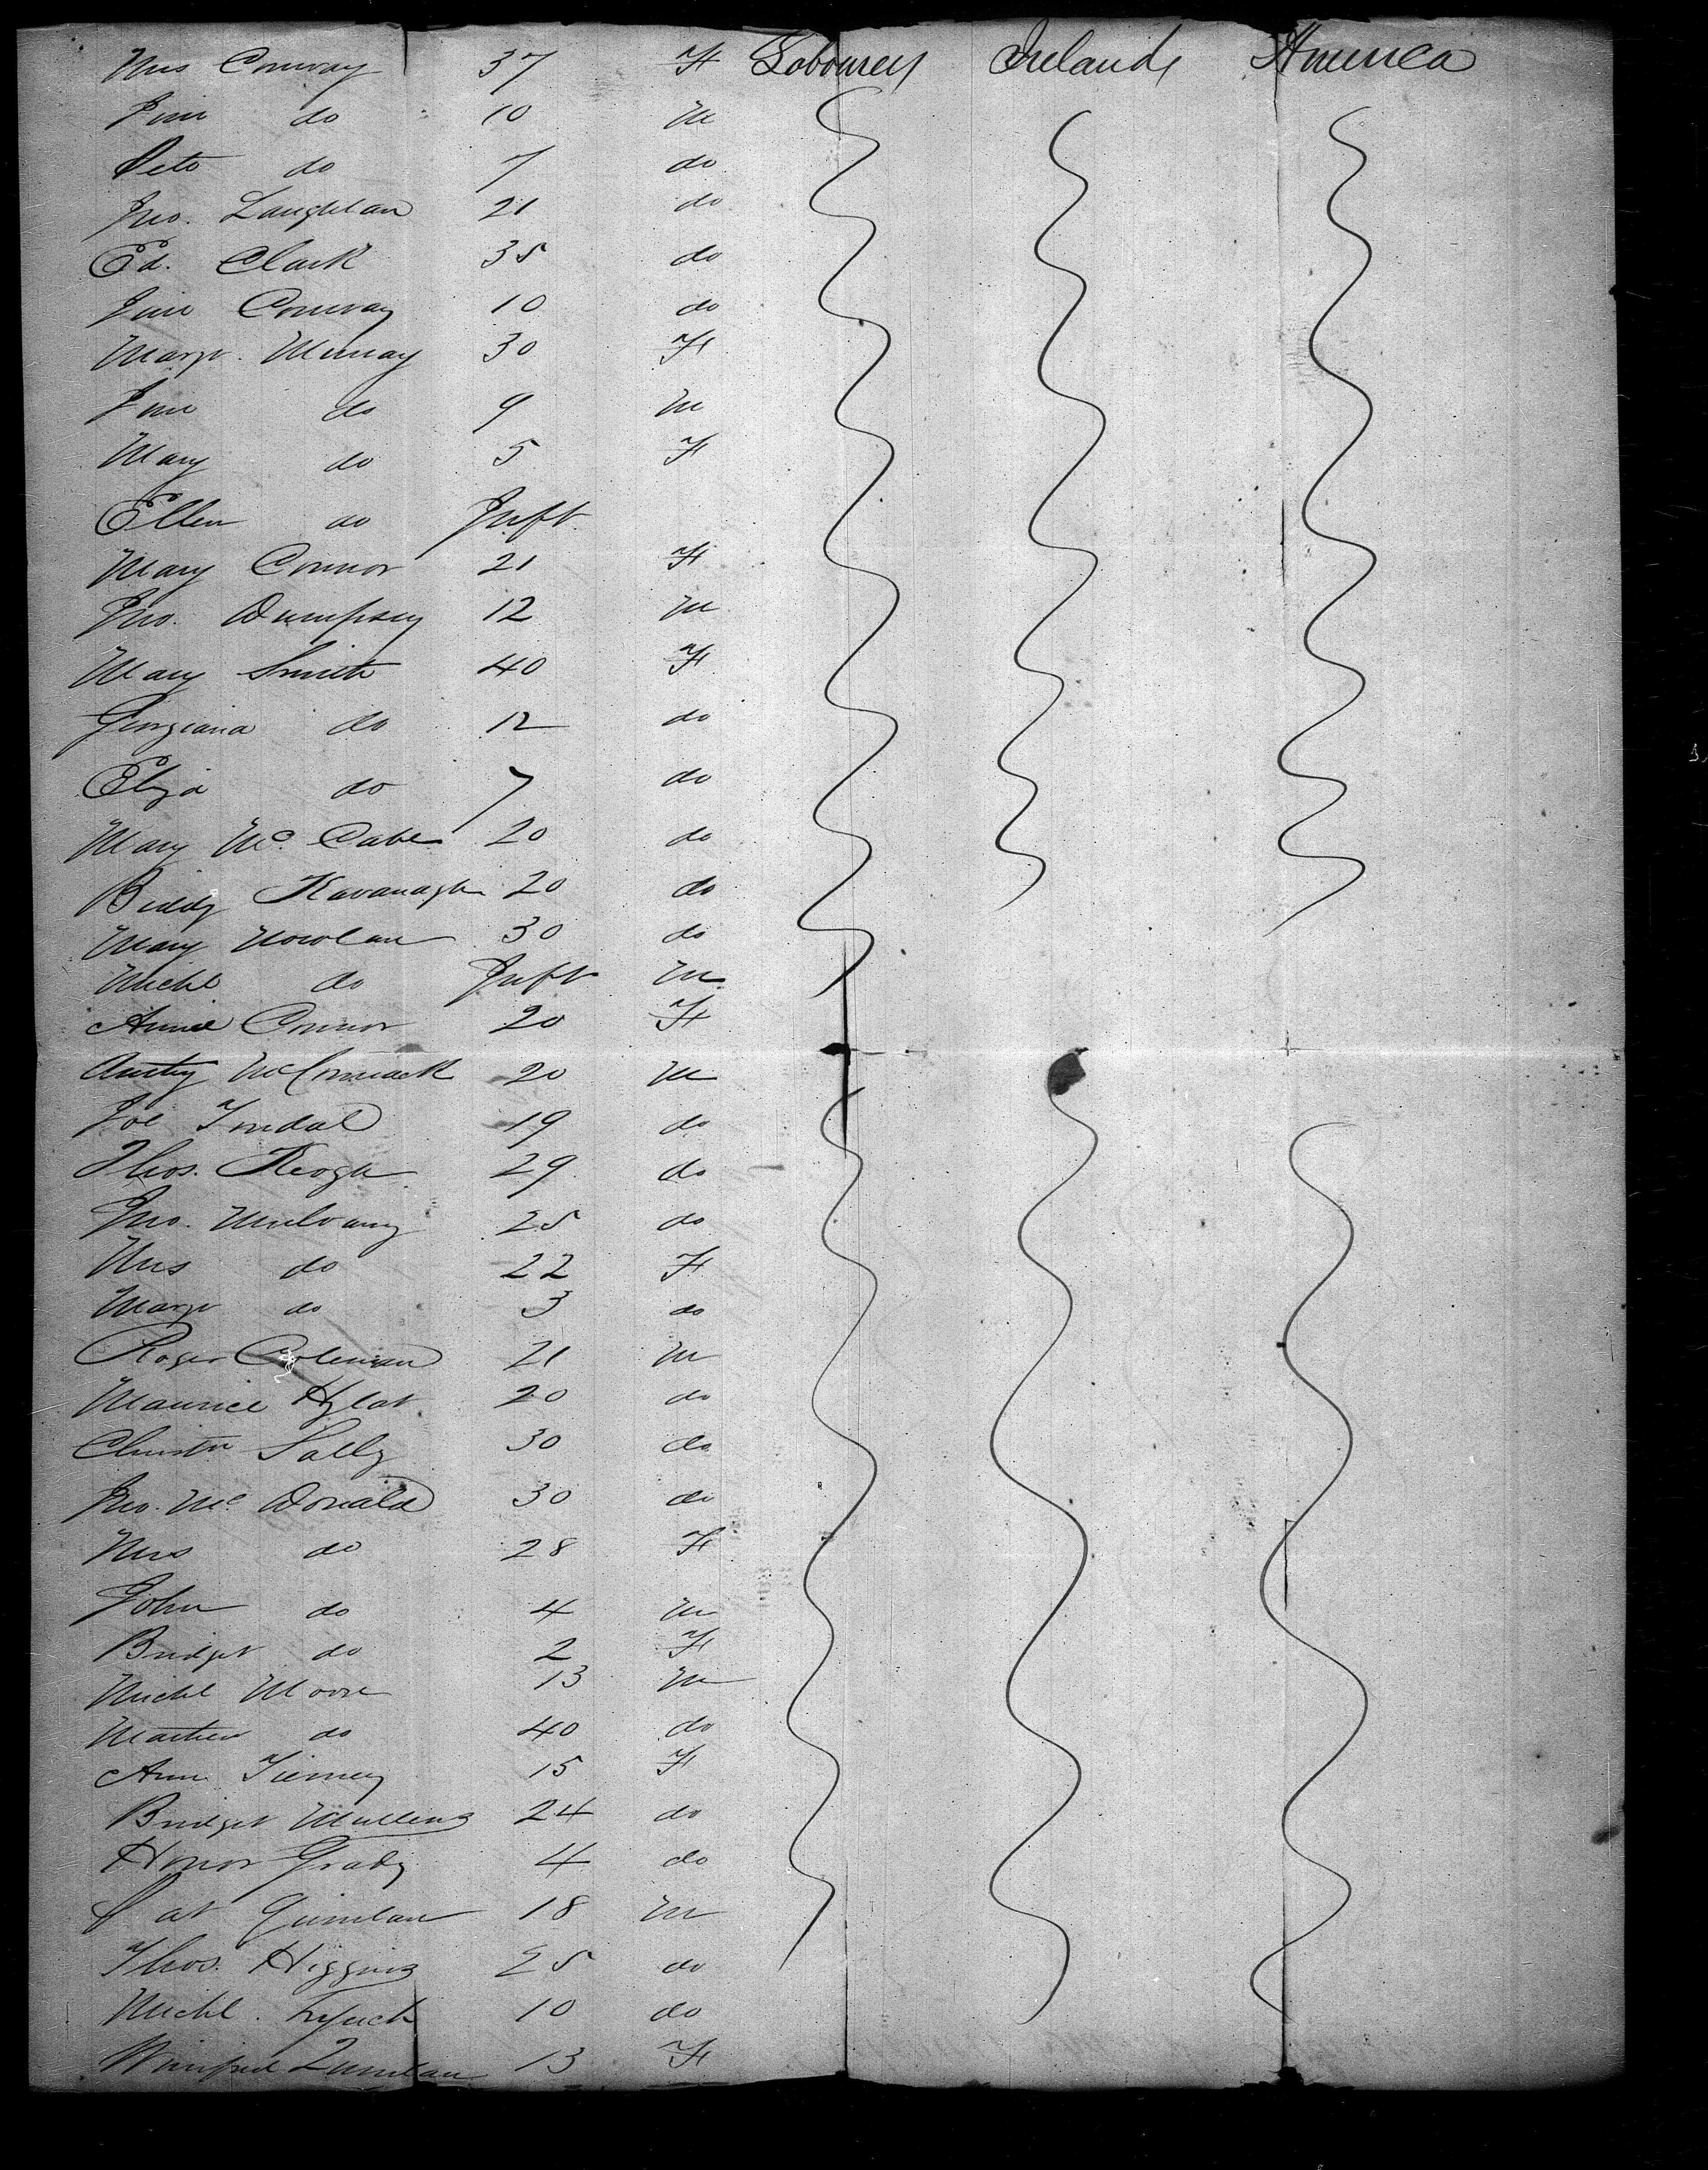 Mrs Conway 37 F Labourers Ireland America
Jim do 10 M
Pete do 7 do
Jno. Laughlan 21 do
Ed. Clark 35 do
Jim Conway 10 do
Margt. Murray 30 F
Jim do 9 M
Mary do 5 F
Ellen do Inft.
Mary Connor 21 F
Jno. Dumpsey 12 M
Mary Smith 40 F
Georgiana do 12 do
Eliza do 7 do
Mary Mc. Cabe 20 do
Biddy Kavanagh 20 do
Mary Nowlan 30 do
Michl do Inft M
Annie Connor 20 F
McCormack 20 M
Joe 19 do
Thos. Keogh 29 do
Jno. Mulvany 25 do
Mrs do 22 F
Margt do 3 do
Roger Coleman 21 M
Maurice 20 do
Christr Sally 30 do
Jno. Mc Donald 30 do
Mrs do 28 F
John do 4 M
Bridget do 2 F
Michl Moore 13 M
do 40 do
Ann Tierney 15 F
Bridget Mullens 24 do
Honor Grady 4 do
Pat Quinlan 18 M
Thos. Higgins 25 do
Michl. Lynch 10 do
Winifred Quinlan 13 F